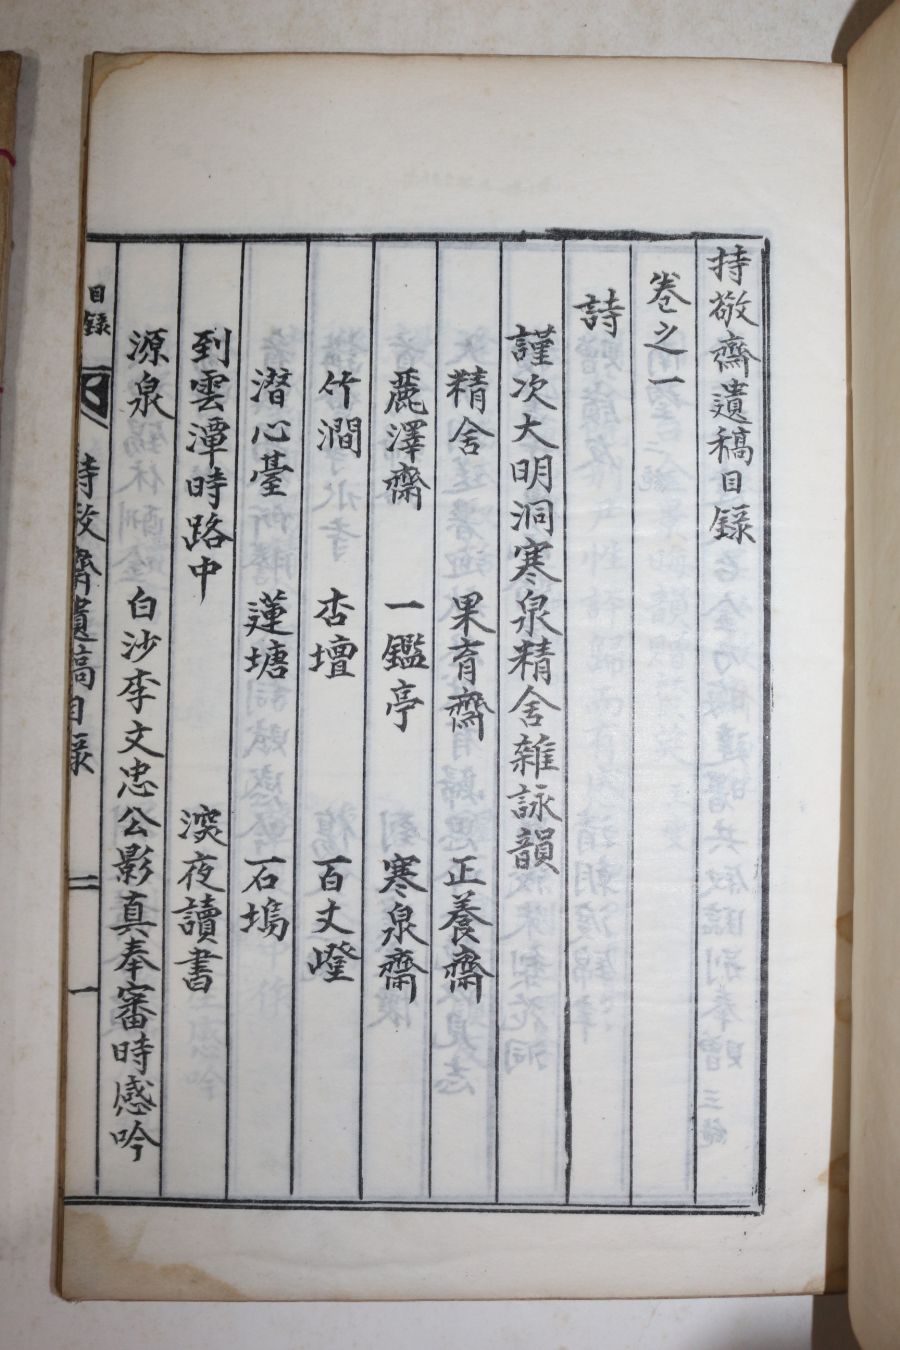 持敬齋遺稿目錄
卷之一
詩
謹次大明洞寒泉精舍雜詠韻
精舍 果育齋 正養齋
麗澤齋 一鑑亭 寒泉齋
竹澗 杏壇 百丈嶝
潛心臺 蓮塘 石塢
到雲潭時路中 深夜讀書
源泉 白沙李文忠公影真奉審時感吟
目錄 持敬齋遺稿目錄 二 一